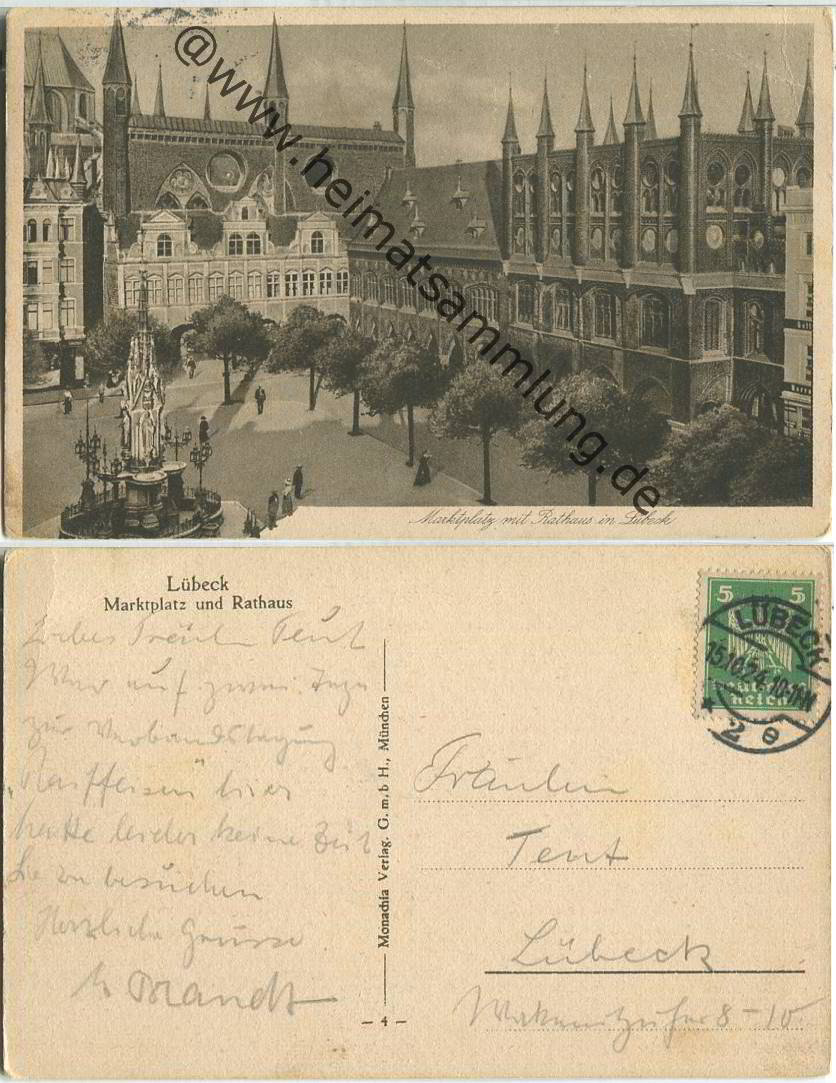 @www.heimatsammlung.de
Marktplatz mit Rathaus in Lübeck
Lübeck
Marktplatz und Rathaus
Liebes Fräulein Tent
War auf zwei Tage
zur Verbandstagung
"Raiffeisen" hier
hatte leider keine Zeit
Sie zu besuchen
Herzliche Grüsse
Brandt
Monachia Verlag. G. m. b H., München
- 4 -
5 5
Deutsches
Reich
LÜBECK
15.10.24.10-11V
* 2 e
Fräulein
Tent
Lübeck
Wakenitzufer 8-10